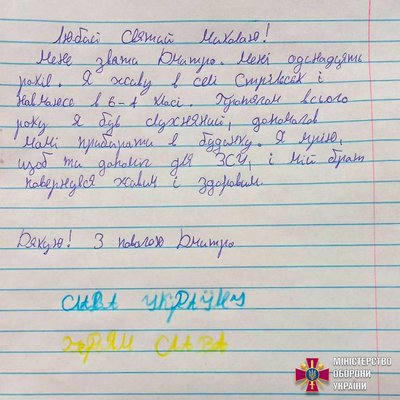 Любий Святий Миколаю!
Мене звати Дмитро. Мені одинадцять
років. Я живу в селі і
навчаюсь в 6-А класі. Протягом всього
року я був слухняний, допомагав
мамі прибирати в будинку. Я мрію,
щоб ти допоміг для ЗСУ, і мій брат
повернувся живим і здоровим.
Дякую! З повагою Дмитро
СЛАВА УКРАЇНІ
ГЕРОЯМ СЛАВА
МІНІСТЕРСТВО
ОБОРОНИ
УКРАЇНИ